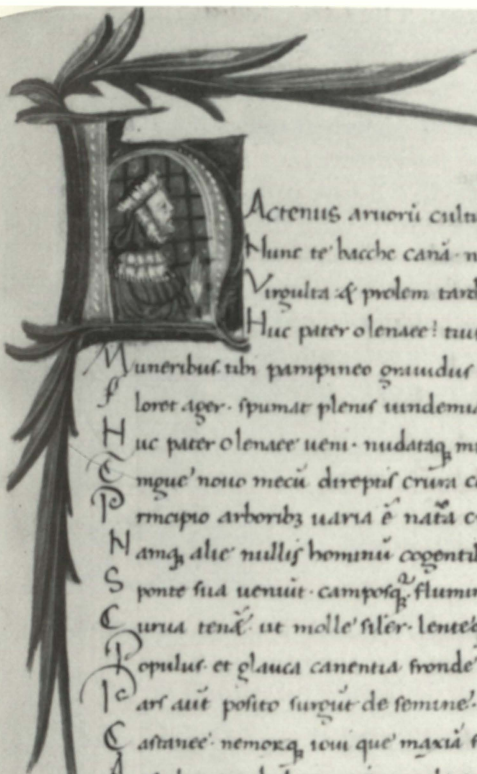 HActenus aruorū cultu
Nunc te bacche canā· n
Virgulta & prolem tard
Huc pater olenaee! tuu
Muneribus· tibi pampineo grauidus
floret ager· spumat plenus uindemia
Huc pater olenaee ueni· nudataqꝫ mu
Tingue nouo mecū direptis crura co
Principio arboribꝫ uaria ē natā c
Namqꝫ alie nullis hominū cogenti
Sponte sua ueniūt· camposqꝫ flumin
Curua tenēt· ut molle siler· lenteq
Populus· et glauca canentia fronde
Pars aūt posito surgūt de semine·
Castanee· nemorqꝫ ioui que maxīa f